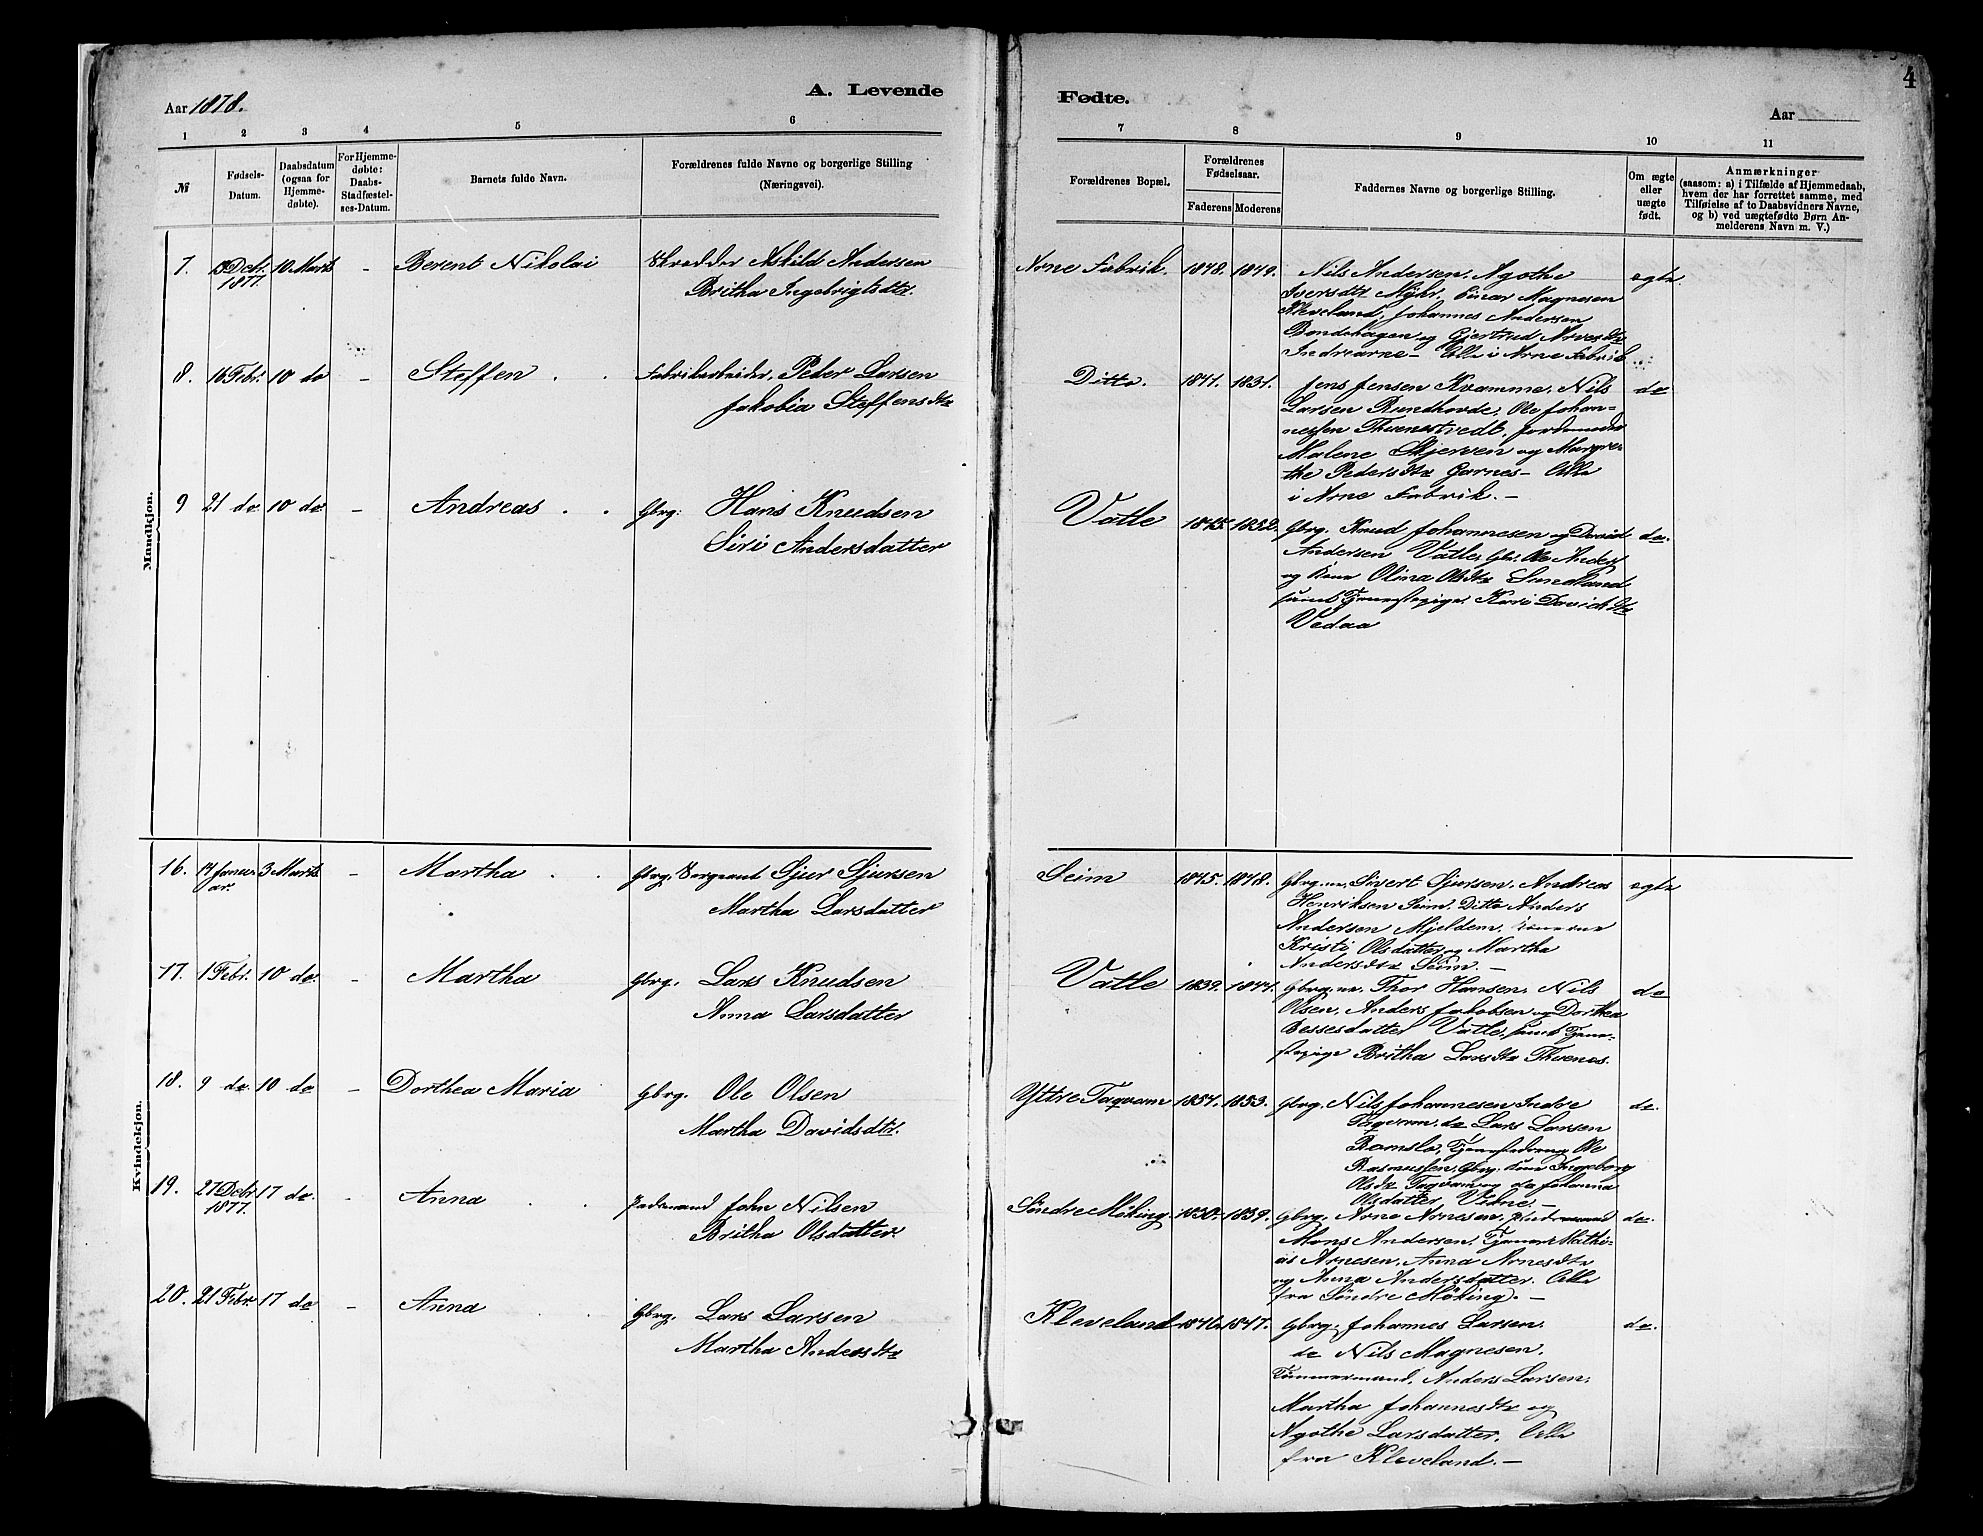 4
Aar 1878.
A. Levende
Fødte.
Aar
1 2 3 4 5 6 7 8 9 10 11
№
Fødsels-
Datum.
Daabsdatum
(ogsaa for
Hjemme-
døbte).
For Hjemme-
døbte:
Daabs-
Stadfæstel-
ses-Datum.
Barnets fulde Navn.
Forældrenes fulde Navne og borgerlige Stilling
(Næringsvei).
Forældrenes Bopæl.
Forældrenes
Fødselsaar.
Faderens Moderens
Faddernes Navne og borgerlige Stilling.
Om ægte
eller
uægte
født.
Anmærkninger
(saasom: a) i Tilfælde af Hjemmedaab,
hvem der har forrettet samme, med
Tilføielse af to Daabsvidners Navne,
og b) ved uægtefødte Børn An-
melderens Navn m. V.)
Mandkjøn.
7. Decbr. 1877. 10 Marts - Berent Nikolai
Skrædder Askild Andersen
Britha Ingebrigtsdtr.
Arne Fabrik. 1848. 1849.
Nils Andersen, Agothe
Iversdtr Myhr, Einar Magnesen
Kleveland, Johannes Andersen
Bondehagen og Gjertrud Arnesdtr
Indrearne - Alle i Arne Fabrik
ægte.
8. 16 Febr. 10 do - Steffen
Fabrikarbeider, Peder Larsen
Jakobia Steffensdtr
Ditto. 1841. 1831.
Jens Jensen Kvamme, Nils
Larsen Rundhovde, Ole Johan-
nessen Thvenstvedt, Jordemoder
Malene Skjerven og Margre-
the Pedersdtr Garnes - Alle
i Arne Fabrik. -
do
9 21 do 10 do - Andreas
Gbrg: Hans Knudsen
Siri Andersdatter
Vatle 1845. 1852.
Gbrg. Knud Johannesen og David
Andersen Vatle, Gbr. Ole Anders
og Kone Olina Olsdtr
samt Tjenestepige. Kari Davidsdtr
Vedaa
do.
Kvindekjøn.
16. 14 Janu-
ar. 3 Marts - Martha
Gbrg. Sergeant Sjur Sjursen
Martha Larsdatter
Seim 1845. 1848.
Gbrg.ne, Sivert Sjursen, Andreas
Henriksen Seim. Ditto Anders
Andersen Mjeldem, Konerne
Kristi Olsdatter og Martha
Andersdtr Seim. -
ægte
17. 1 Febr. 10 do. - Martha
Gbrg. Lars Knudsen
Anna Larsdatter
Vatle 1839. 1841.
Gbrg.ne. Thor Hansen, Nils
Olsen, Anders Jakobsen og Dorthea
Bessesdatter Vatle, samt Tjene-
stepige Britha Larsdtr Thvenes.
do
18. 9 do. 10 do - Dorthea Maria
Gbrg. Ole Olsen
Martha Davidsdtr.
Ytre Taqvam 1854. 1853.
Gbrg. Nils Johannesen Indre
Taqvam, do Lars Larsen
Romslo, Tjenestedreng Ole
Rasmussen, Gbrg. Kone Ingeborg
Olsdtr Taqvam og do Johanna
Olsdatter Vikne. -
do.
19. 27 Decbr
1877. 17 do. - Anna
John Nilsen
Britha Olsdatter.
Søndre Møking. 1830. 1839.
Gbrg. Arne Arnesen,
Mons Andersen, Tjener Mathi-
as Arnesen, Anna Arnesdtr
og Anna Andersdatter. Alle
fra Søndre Møking. -
do.
20. 21 Febr 17 do - Anna
Gbrg. Lars Larsen
Martha Andersdtr
Kleveland 1846. 1847.
Gbrg. Johannes Larsen.
do Nils Magnesen.
Tømmermand, Anders Larsen,
Martha Johannesdtr og
Agothe Larsdatter. Alle
fra Kleveland. -
do.